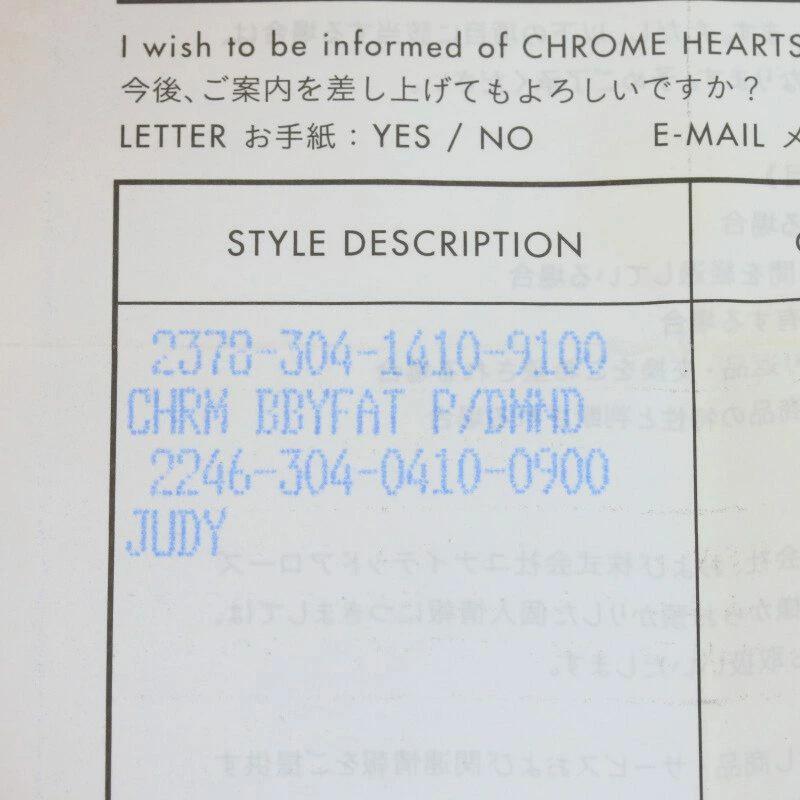 I wish to be informed of CHROME HEARTS
今後、ご案内を差し上げてもよろしいですか？
LETTER お手紙：YES / NO E-MAIL メ
STYLE DESCRIPTION
2378-304-1410-9100
CHRM BBYFAT P/DMND
2246-304-0410-0900
JUDY